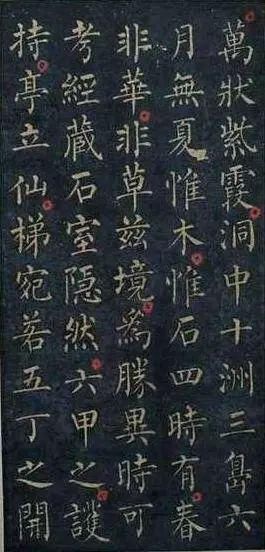 萬狀紫霞洞中十洲三島六
月無夏惟木惟石四時有春
非華非草茲境為勝異時可
考經藏石室隱然六甲之護
持亭立仙梯宛若五丁之開